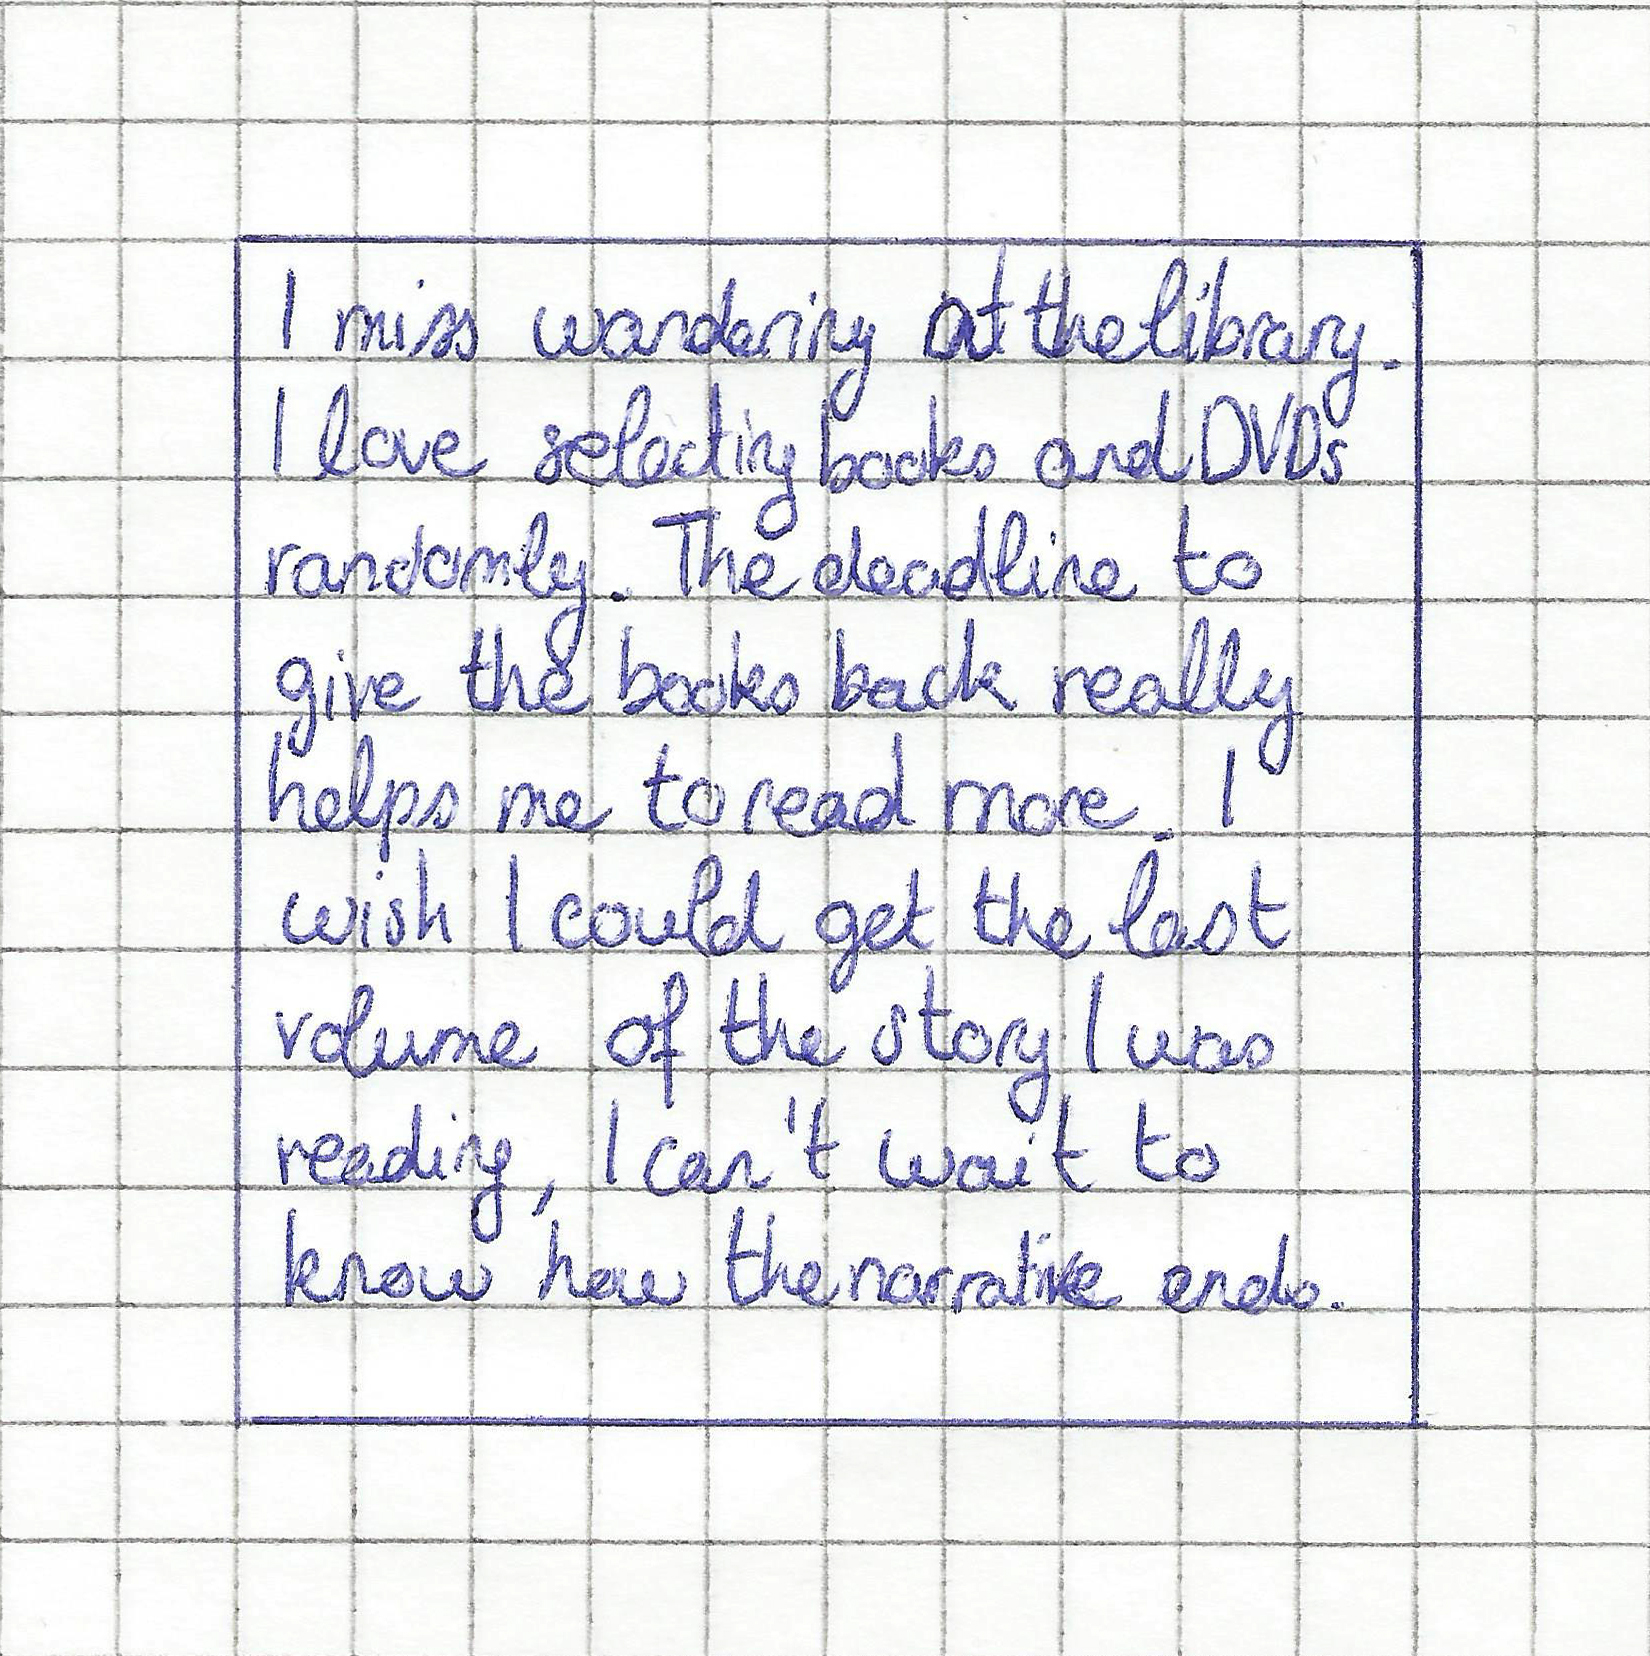 I miss wandering at the library.
I love selecting books and DVDs
randomly. The deadline to
give the books back really
helps me to read more. I
wish I could get the last
volume of the story I was
reading, I can't wait to
know how the narrative ends.